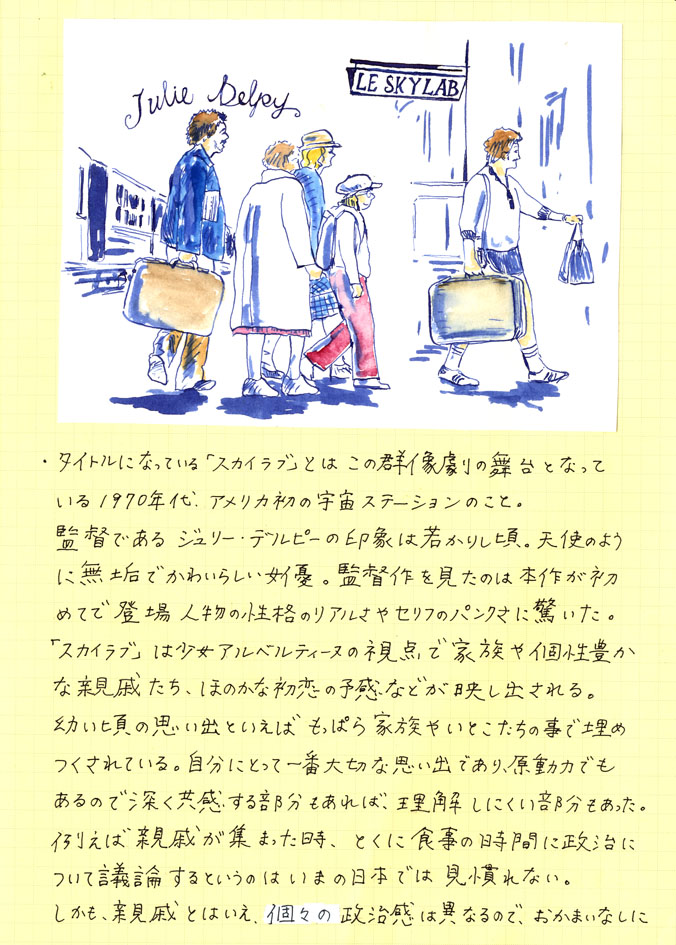 Julie Delpy
LE SKYLAB
・タイトルになっている「スカイラブ」とは この群像劇の舞台となって
いる1970年代、アメリカ初の宇宙ステーションのこと。
監督である ジュリー・デルピーの印象は若かりし頃。天使のよう
に無垢でかわいらしい女優。監督作を見たのは本作が初
めてで登場人物の性格のリアルさやセリフのパンクさに驚いた。
「スカイラブ」は少女アルベルティーヌの視点で家族や個性豊か
な親戚たち、ほのかな初恋の予感などが映し出される。
幼い頃の思い出といえば もっぱら家族やいとこたちの事で埋め
つくされている。自分にとって一番大切な思い出であり、原動力でも
あるので深く共感する部分もあれば、理解しにくい部分もあった。
例えば親戚が集まった時、とくに食事の時間に政治に
ついて議論するというのはいまの日本では見慣れない。
しかも、親戚とはいえ、個々の政治感は異なるので、おかまいなしに